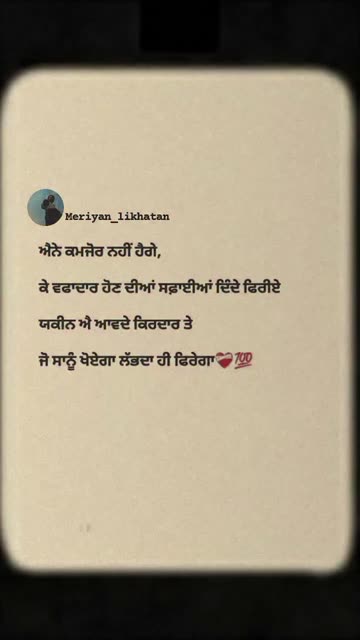 Meriyan_likhatan
ਐਨੇ ਕਮਜੋਰ ਨਹੀਂ ਹੈਗੇ,
ਕੇ ਵਫਾਦਾਰ ਹੋਣ ਦੀਆਂ ਸਫ਼ਾਈਆਂ ਦਿੰਦੇ ਫਿਰੀਏ
ਯਕੀਨ ਐ ਆਵਦੇ ਕਿਰਦਾਰ ਤੇ
ਜੋ ਸਾਨੂੰ ਖੋਏਗਾ ਲੱਭਦਾ ਹੀ ਫਿਰੇਗਾ❤️‍🩹💯